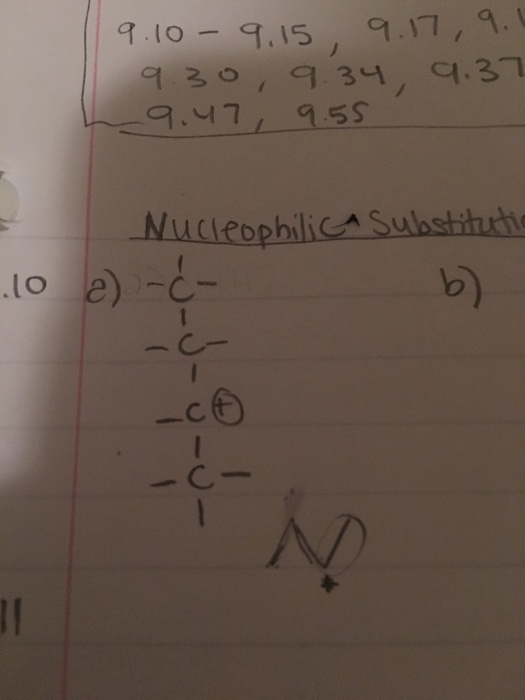 9.10 - 9.15, 9.17, 9.1
9.30, 9.34, 9.37
9.47, 9.55
Nucleophilic Substituti
.10 a) -C- b)
-C-
-C⊕
-C-
11